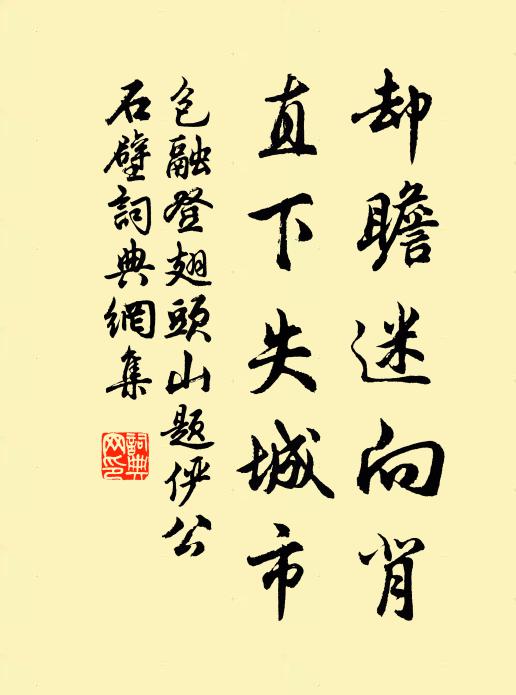 却瞻迷向背
直下失城市
包融登翅頭山題俨公
石壁詞典網集
詞典
网印